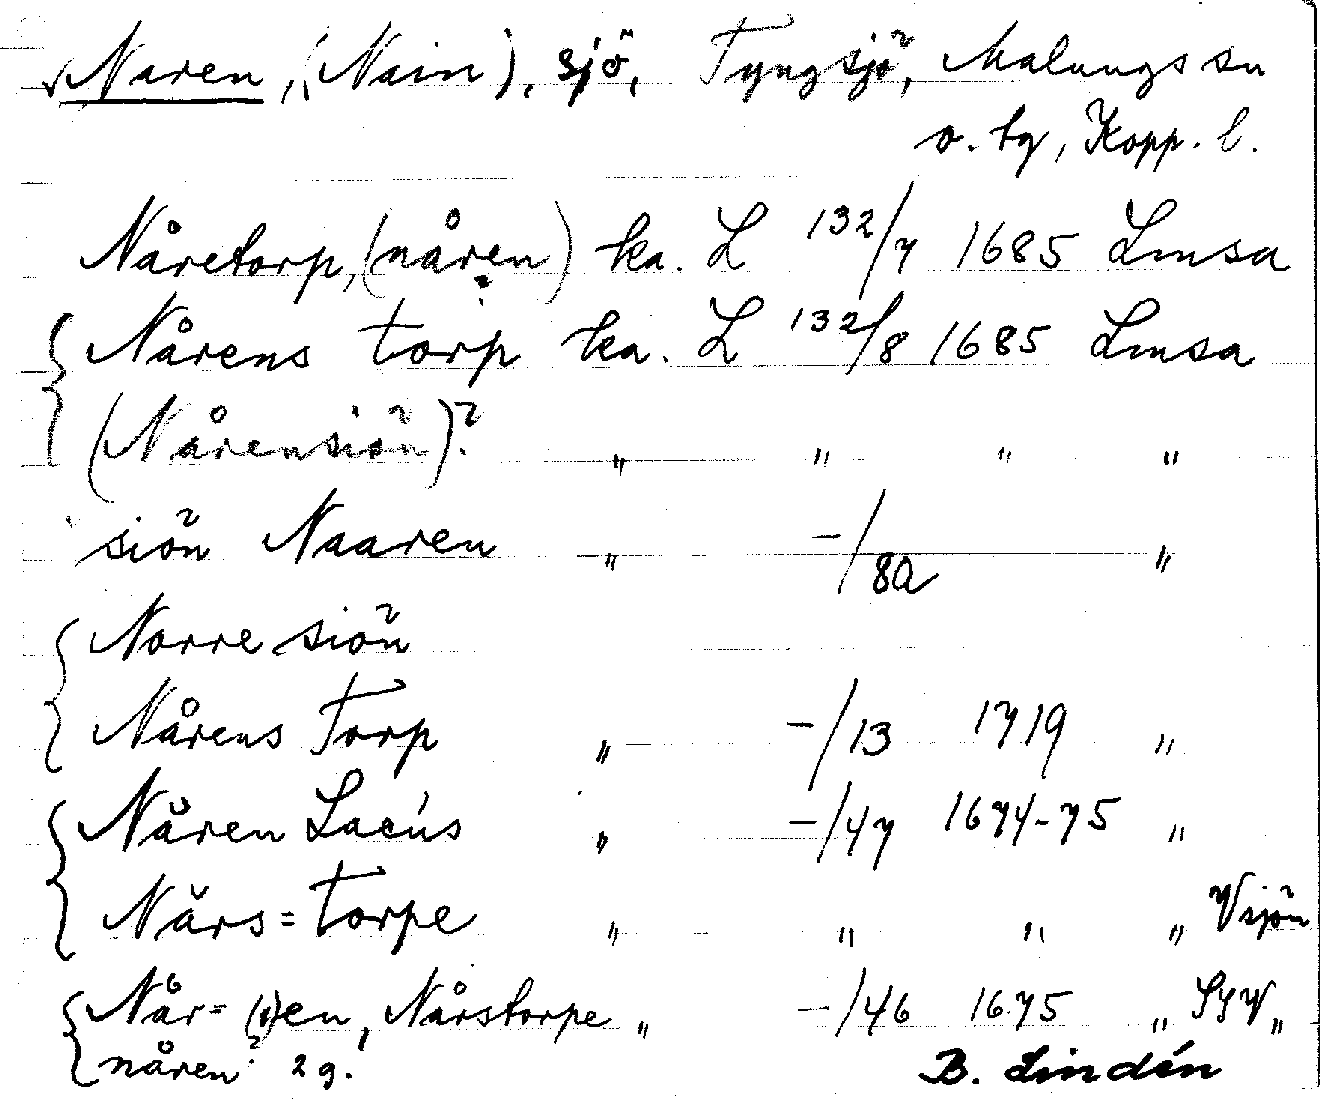 Naren, (Nain), sjö, Tyngsjö, Malungs sn
o. tg, Kopp. l.
Nåretorp, (nåren) ka. L 132/7 1685 Lmsa
Nårens torp ka. L 132/8 1685 Lmsa
(Nårensiön)? " " " "
siön Naaren " -/8a "
Norre siön
Nårens Torp " -/13 1719 "
Nåren Lacus " -/47 1674-75 "
Nårs=torpe " " " " V sjön
Når= en, Nårstorpe " -/46 1675 " "
nåren 2 g.
B. Lindén